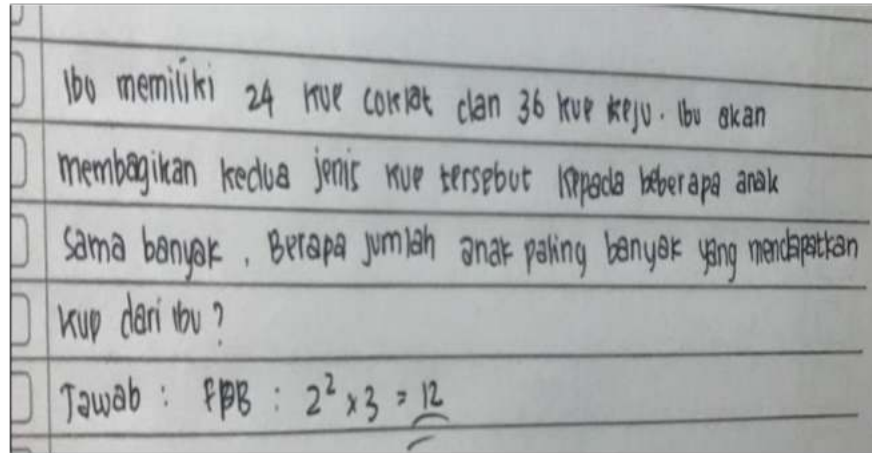 Ibu memiliki 24 kue coklat dan 36 kue keju. Ibu akan
membagikan kedua jenis kue tersebut kepada beberapa anak
sama banyak, Berapa jumlah anak paling banyak yang mendapatkan
kue dari ibu?
Jawab : FPB : 2² x 3 = 12